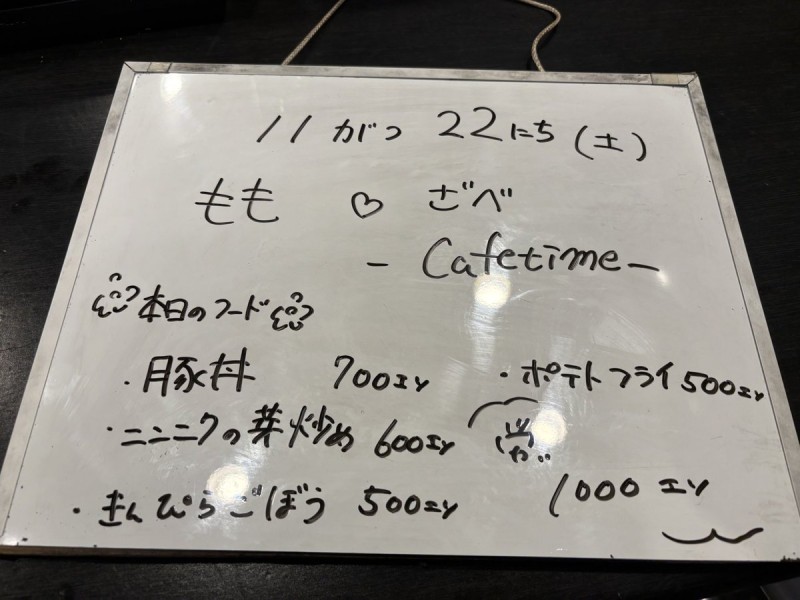 11がつ 22にち (土)
もも ♡ ざべ
- Cafetime -
本日のフード
・豚丼 700エン
・ポテトフライ 500エン
・ニンニクの芽炒め 600エン
・きんぴらごぼう 500エン
1000エン